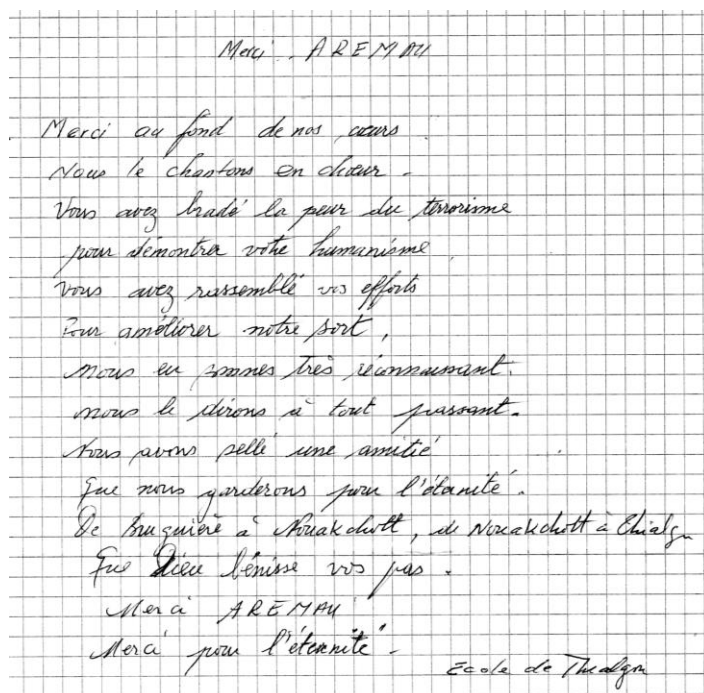 Merci . AREMAU
Merci au fond de nos cœurs
Nous le chantons en chœur .
Vous avez bradé la peur du terrorisme
pour démontrer votre humanisme
vous avez rassemblé vos efforts
Pour améliorer notre sort ,
nous en sommes très réconnaissant .
nous le dirons à tout passant .
Nous avons sellé une amitié
Que nous garderons pour l'éternité .
De Bruguière à Nouakchott , de Nouakchott à
Que Dieu bénisse vos pas .
Merci AREMAU
Merci pour l'éternité .
Ecole de Thialgou